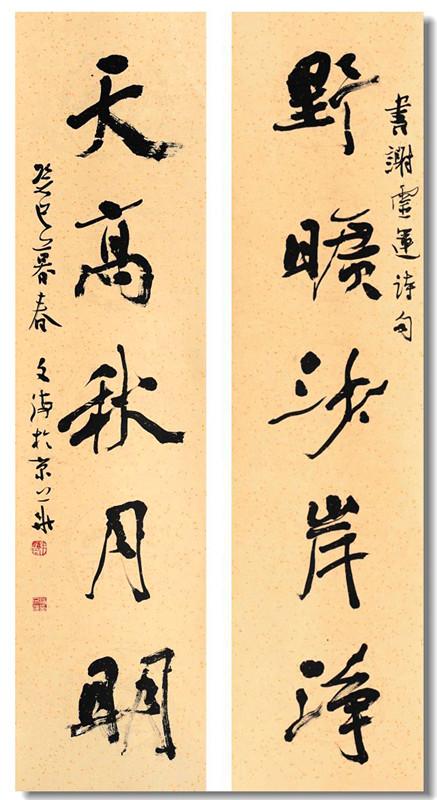 書謝靈運詩句
野曠沙岸淨
天高秋月明
癸巳暮春 文 於京